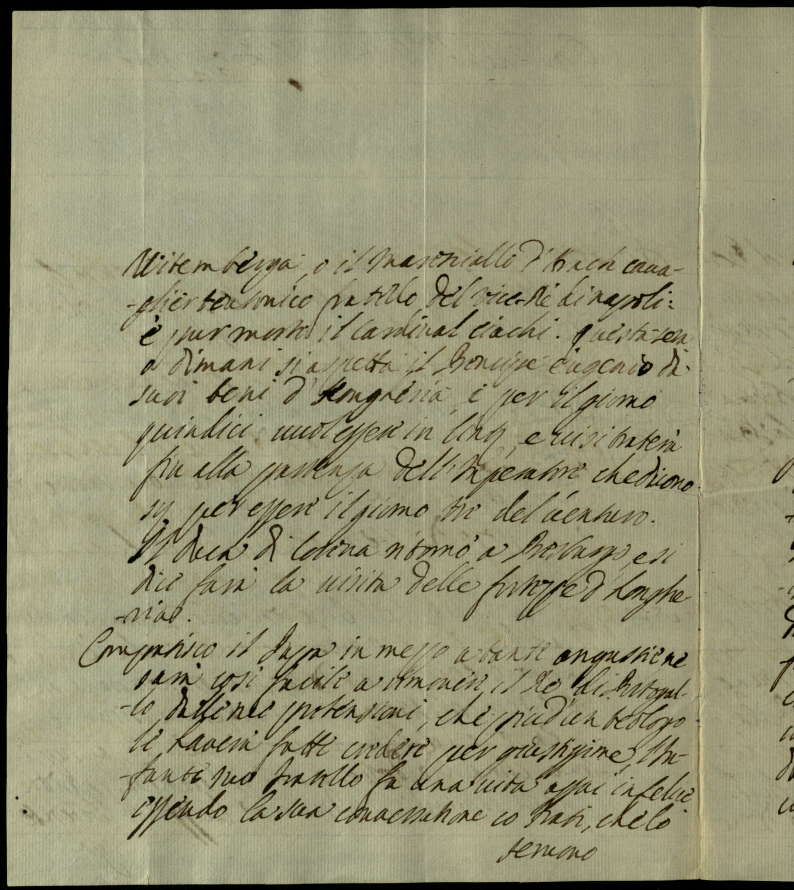 Vitemberga, o il Maresciallo d'Harach cava-
-glier teutonico fratello del Vice-Re di napoli:
è pur morto il Cardinal ciachi. questa sera
o dimani si aspetta il Principe eugenio da
suoi beni d'Hongheria, e per il giorno
quindici vuol essere in lintz, e vi si tratterà
fin alla partenza dell'Imperatore che dicono
sij per essere il giorno tre del venturo.
Il duca di lorena ritornò a Presburgo e si
dice farà la visita delle fortezze d'Honghe-
-ria.
Compatisco il Papa in mezzo a tante angustie ne
sarà così facile a rimovere il Re di Portogal-
-lo dalle sue pretensioni, che qualche teologo
le haverà fatte credere per giustissime, l'In-
-fante suo fratello fa una vita assai infelice
essendo la sua conversatione co frati, che lo
servono